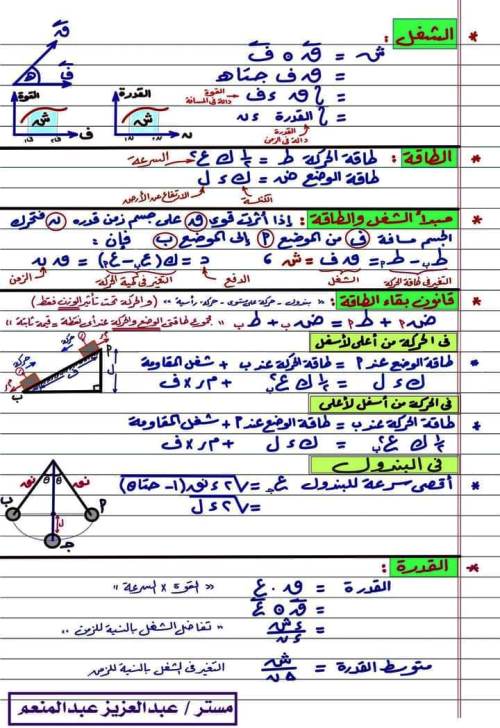 * الشغل :
ش = ق⃗ ⊙ ف⃗
= ق ف جتا ه
= ∫ ق ءف القوة دالة في المسافة
= ∫ القدرة ءن القدرة دالة في الزمن
ق⃗
ه
ف⃗
القوة
ش
ف
القدرة
ش
ن
* الطاقة : طاقة الحركة ط = ½ ك ع² السرعة
طاقة الوضع ض = ك ء ل
الكتلة الارتفاع عن الأرض
* مبدأ الشغل والطاقة : إذا أثرت قوى ق على جسم زمن قدره ن فتحرك
الجسم مسافة ف من الموضع P إلى الموضع ب فإن :
طب - طP = ق ف = ش ، د = ك(عب - عP) = ق ن
التغير في طاقة الحركة الشغل الدفع التغير في كمية الحركة الزمن
* قانون بقاء الطاقة : « بندول - حركة على مستوى - حركة رأسية » (والحركة تحت تأثير الوزن فقط)
ضP + طP = ضب + طب « مجموع طاقتي الوضع والحركة عند أى لحظة = قيمة ثابتة »
في الحركة من أعلى لأسفل
* طاقة الوضع عند P = طاقة الحركة عند ب + شغل المقاومة
ك ء ل = ½ ك ع²ب + م × ف
حركة
P
ل
ب
في الحركة من أسفل لأعلى
* طاقة الحركة عند ب = طاقة الوضع عند P + شغل المقاومة
½ ك ع²ب = ك ء ل + م × ف
في البندول
* أقصى سرعة للبندول عج = √٢ء نق(١ - جتاθ)
= √٢ء ل
θ θ
نق نق
ب P
ل
جـ
* القدرة :
القدرة = ق . ع « القوة × السرعة »
= ق⃗ ⊙ ع⃗
= ءش / ءن « تفاضل الشغل بالنسبة للزمن »
متوسط القدرة = ش / Δن التغير في الشغل بالنسبة للزمن
مستر / عبدالعزيز عبدالمنعم